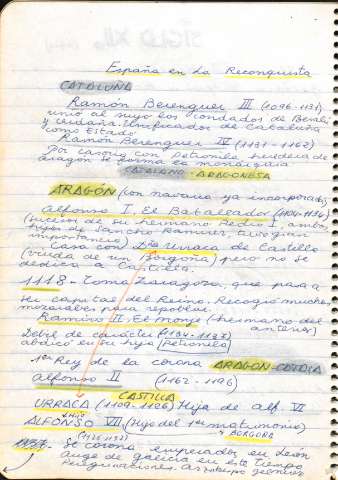 España en la Reconquista
CATALUÑA
Ramón Berenguer III (1096-1131)
unió al suyo los condados de Besalú
y cerdaña. Unificador de Cataluña
como Estado
Ramón Berenguer IV (1131-1162)
Por casarse con petronila heredera de
aragón se forma la monarquía
CATALANO-ARAGONESA
ARAGÓN (con navarra ya incorporada)
Alfonso I El Batallador (1104-1134)
(sucesor de su hermano Pedro I, ambos
hijos de Sancho Ramírez,
importancia)
Casa con Dña Urraca de Castilla
(viuda de un Borgoña) pero no se
dedica a Castilla.
1118 - Toma Zaragoza, que pasa a
ser capital del Reino. Recogió muchos
mozárabes para repoblar.
Ramiro II. El monje (hermano del
anterior)
Débil de carácter (1134-1137)
abdicó en su hija (petronila)
1er Rey de la corona ARAGON-CATOSA
alfonso II (1162-1196)
CASTILLA
URRACA (1109-1126) Hija de alf. VI
ALFONSO VII (Hijo del 1er matrimonio)
BORGOÑA
Se corona emperador en León
auge de galicia en este tiempo
Peregrinaciones. Arzobispo gelmírez